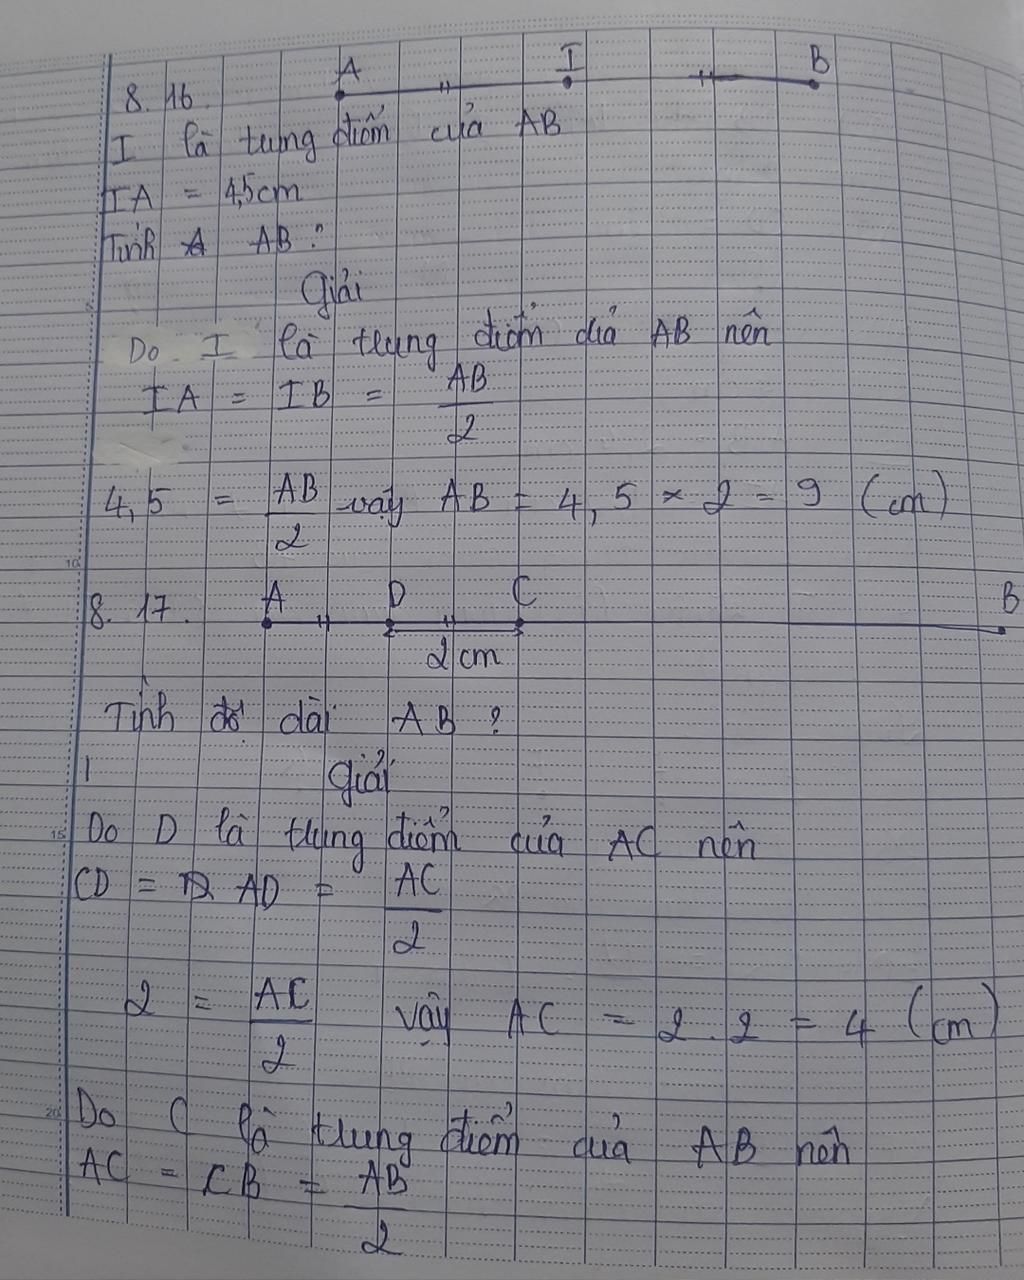 A I B
8.16.
I là trung điểm của AB
IA = 4,5cm
Tính AB?
Giải
Do I là trung điểm của AB nên
IA = IB = AB/2
4,5 = AB/2 vậy AB = 4,5 × 2 = 9 (cm)
8.17. A D C B
2cm
Tính độ dài AB?
Giải
Do D là trung điểm của AC nên
CD = AD = AC/2
2 = AC/2 vậy AC = 2.2 = 4 (cm)
Do C là trung điểm của AB nên
AC = CB = AB/2